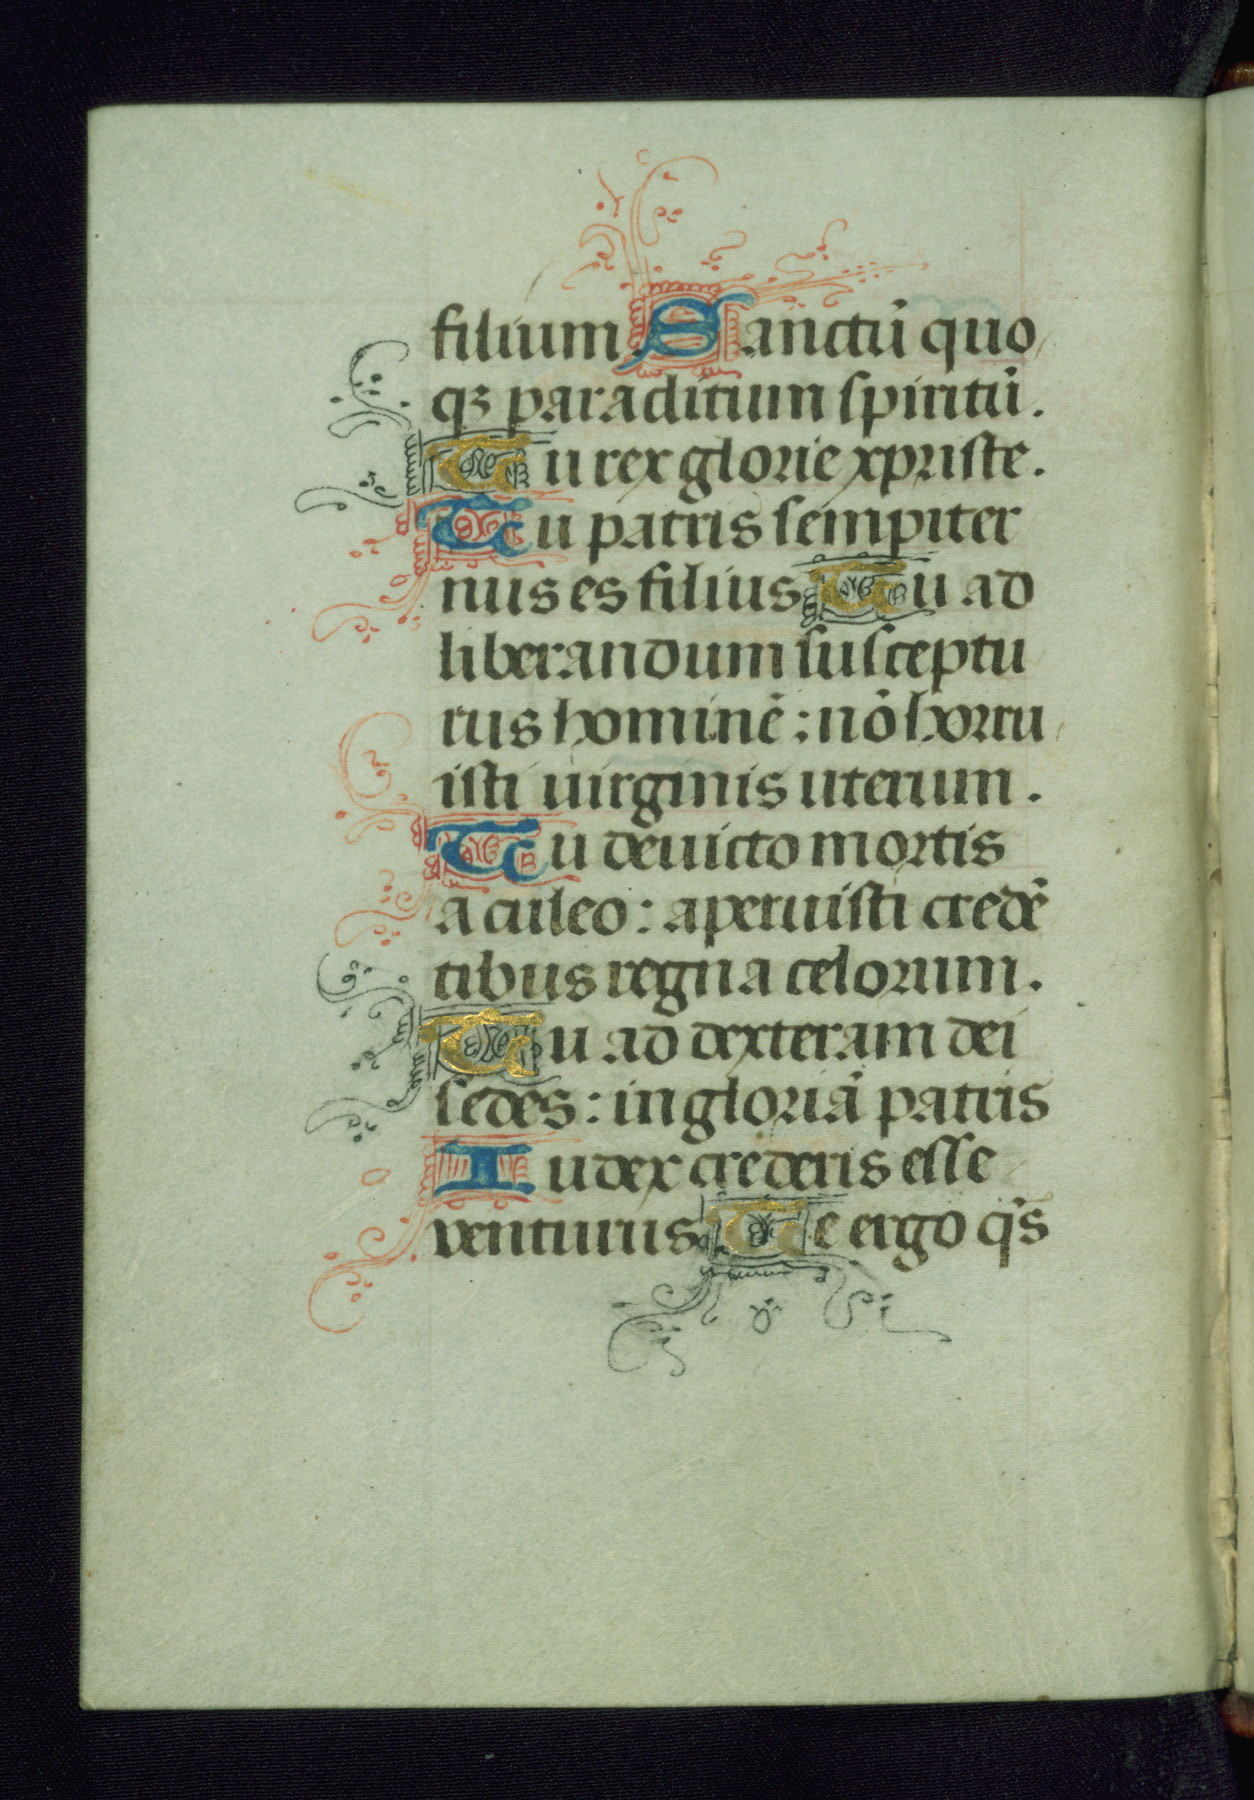 filium Sanctū quo
qȝ paraclitum spiritū.
Tu rex glorie xpriste.
Tu patris sempiter
nus es filius Tu ad
liberandum susceptu
rus hominē: nō horru
isti uirginis uterum.
Tu deuicto mortis
aculeo: aperuisti credē
tibus regna celorum.
Tu ad dexteram dei
sedes: in gloriā patris
Iudex crederis esse
venturus Te ergo q̄s